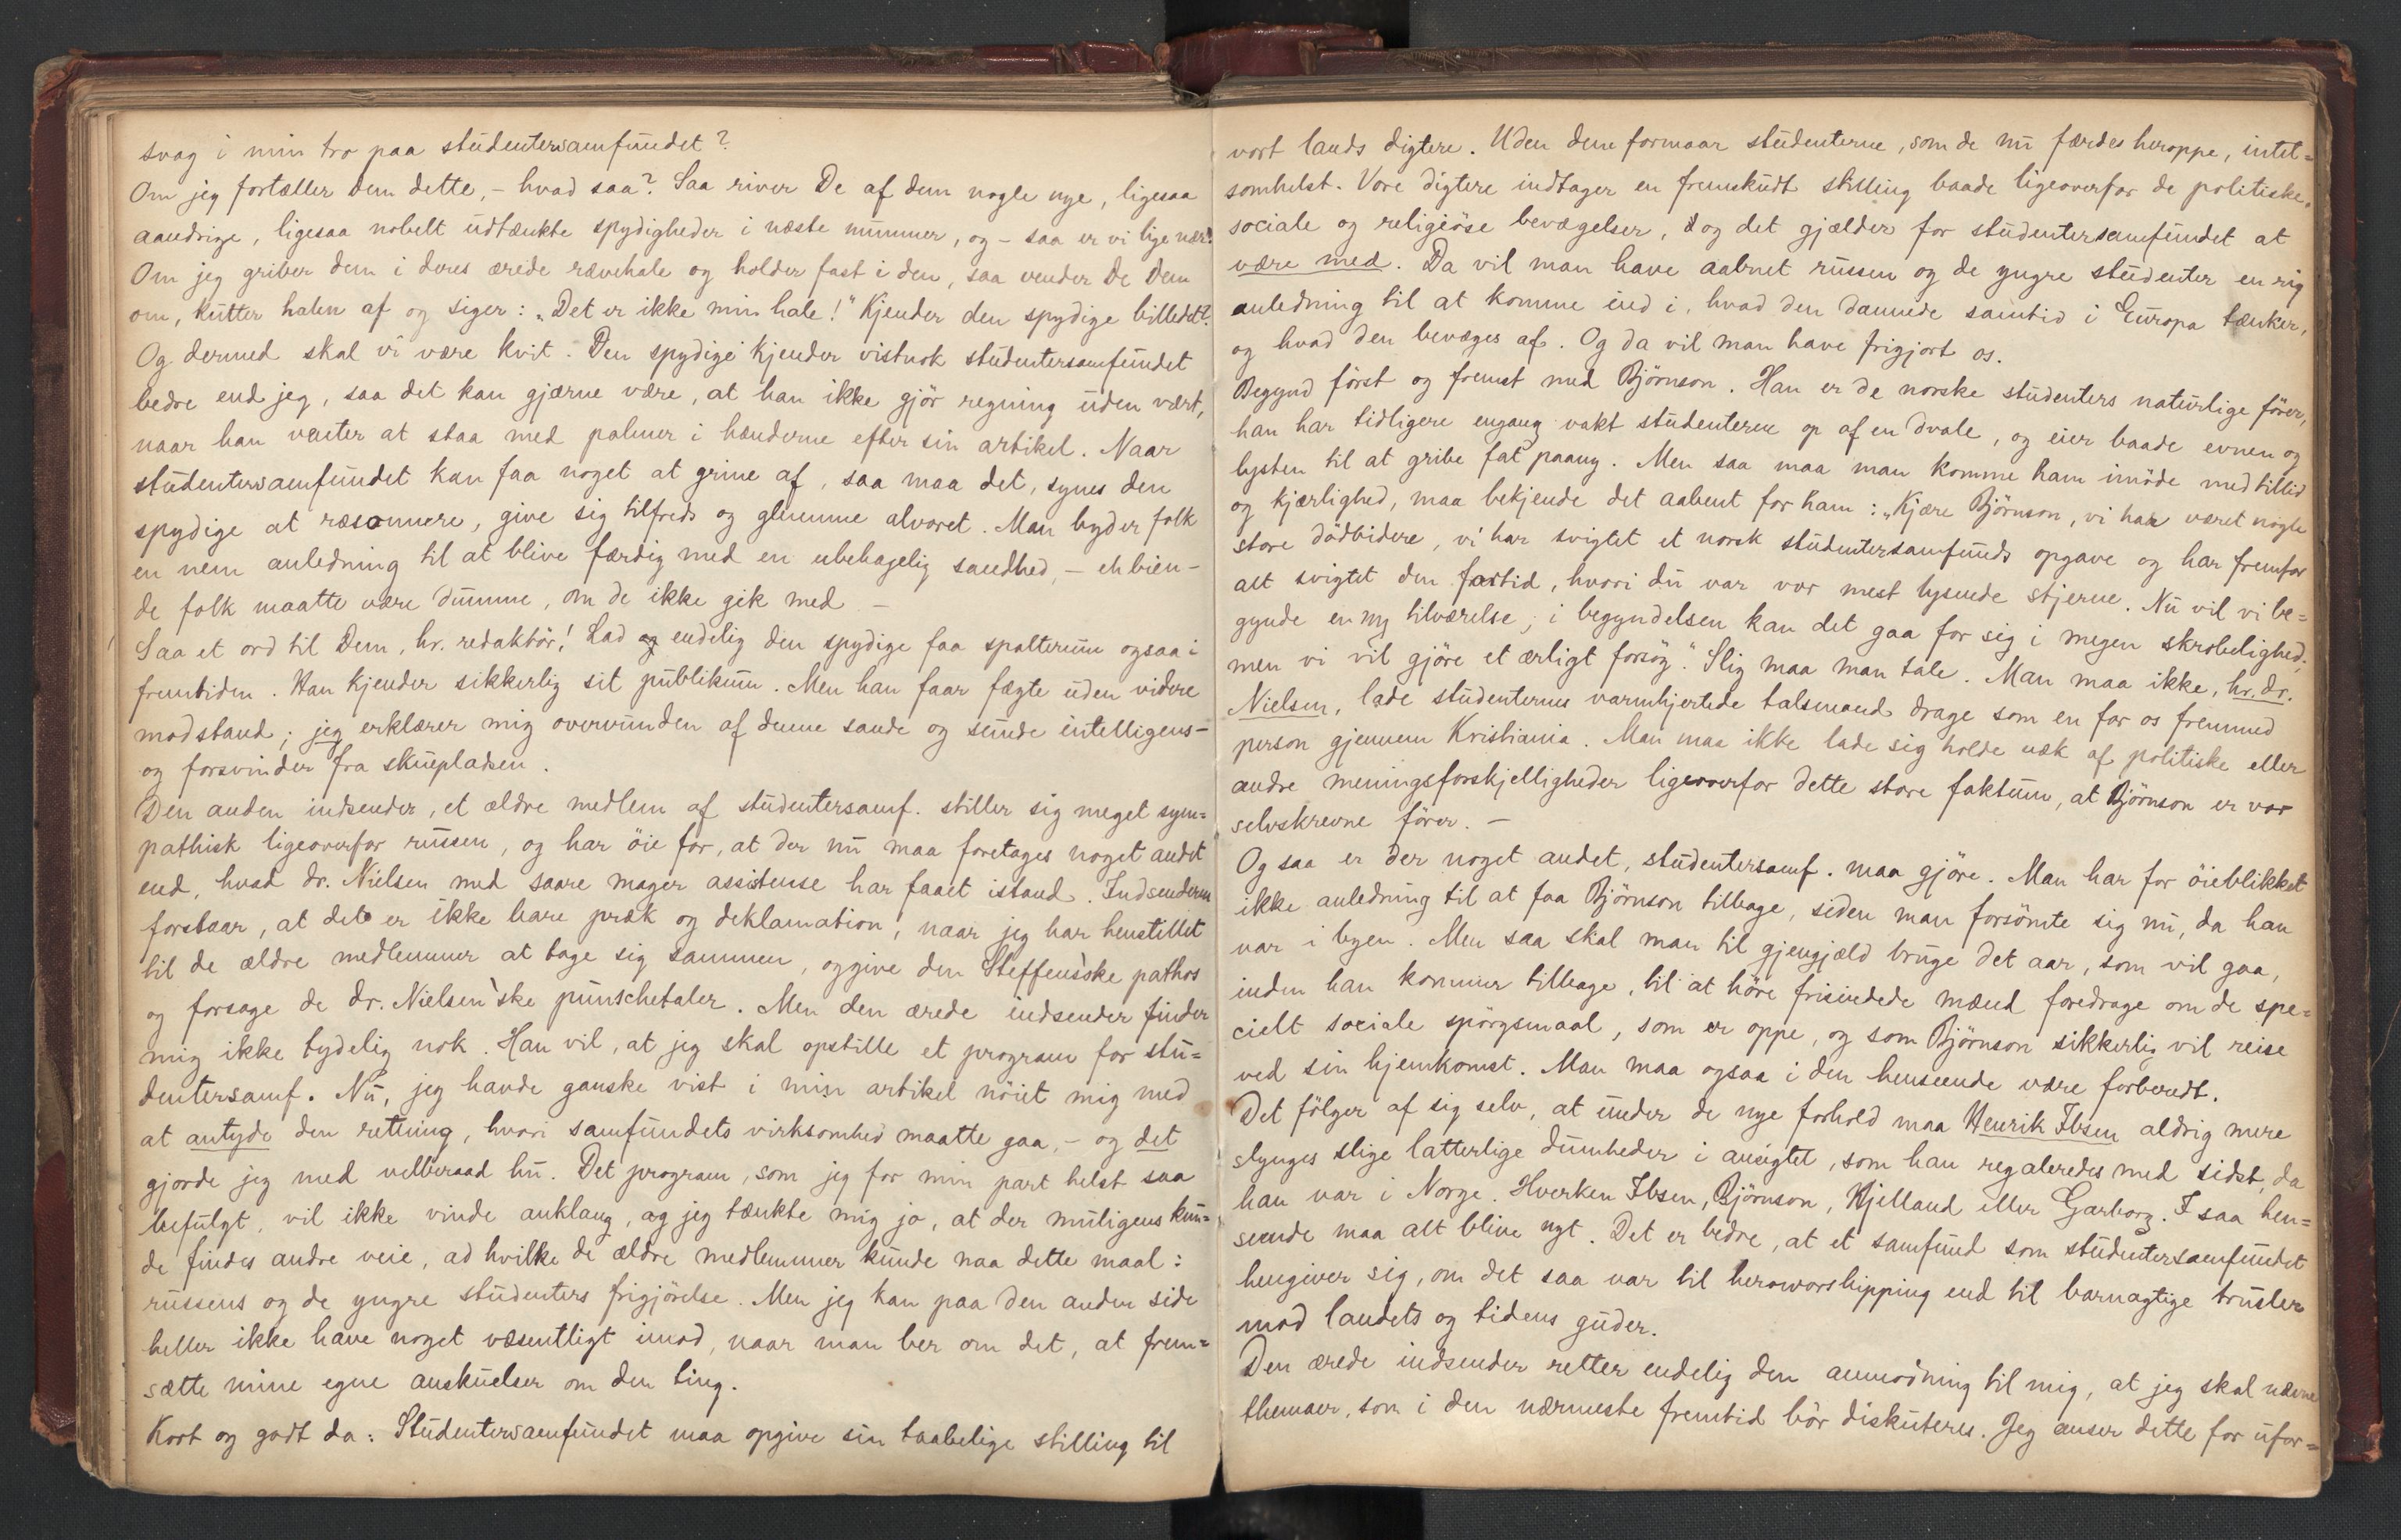 svag i min tro paa studentersamfundet?
Om jeg fortæller dem dette, – hvad saa? Saa river De af dem nogle nye, ligesaa
aandrige, ligesaa nobelt udtænkte spydigheder i næste nummer, og – saa er vi lige nær!
Om jeg griber dem i deres ærede rævehale og holder fast i den, saa vender De Dem
om, kutter halen af og siger: „Det er ikke min hale!" Kjender den spydige billedet?
Og dermed skal vi være kvit. Den spydige kjender vistnok studentersamfundet
bedre end jeg, saa det kan gjærne være, at han ikke gjör regning uden vært,
naar han venter at staa med palmer i hænderne efter sin artikel. Naar
studentersamfundet kan faa noget at grine af, saa maa det, synes den
spydige at ræsonnere, give sig tilfreds og glemme alvoret. Man byder folk
en nem anledning til at blive færdig med en ubehagelig sandhed, – eh bien –
de folk maatte være dumme, om de ikke gik med –
Saa et ord til Dem, hr. redaktör! Lad endelig den spydige faa spalterum ogsaa i
fremtiden. Han kjender sikkerlig sit publikum. Men han faar fægte uden videre
modstand; jeg erklærer mig overvunden af denne sande og sunde intelligens –
og forsvinder fra skuepladsen.
Den anden indsender, et ældre medlem af studentersamf. stiller sig meget sym=
pathisk ligeoverfor russen, og har öie for, at der nu maa foretages noget andet
end, hvad dr. Nielsen med saare mager assistense har faaet istand. Indsenderen
forstaar, at det er ikke bare præk og deklamation, naar jeg har henstillet
til de ældre medlemmer at tage sig sammen, opgive den Steffens'ske pathos
og forsage de dr. Nielsen'ske punschetaler. Men den ærede indsender finder
mig ikke tydelig nok. Han vil, at jeg skal opstille et program for stu=
dentersamf. Nu, jeg havde ganske vist i min artikel nöiet mig med
at antyde den retning, hvori samfundets virksomhed maatte gaa, – og det
gjorde jeg med velberaad hu. Det program, som jeg for min part helst saa
befulgt, vil ikke vinde anklang, og jeg tænkte mig jo, at der muligens kun=
de findes andre veie, ad hvilke de ældre medlemmer kunde naa dette maal:
russens og de yngre studenters frigjörelse. Men jeg kan paa den anden side
heller ikke have noget væsentligt imod, naar man ber om det, at frem=
sætte mine egne anskuelser om den ting.
Kort og godt da: Studentersamfundet maa opgive sin taabelige stilling til
vort lands digtere. Uden dem formaar studenterne, som de nu færdes heroppe, intet=
somhelst. Vore digtere indtager en fremskudt stilling baade ligeoverfor de politiske,
sociale og religiöse bevægelser, og det gjælder for studentersamfundet at
være med. Da vil man have aabnet russen og de yngre studenter en rig
anledning til at komme ind i, hvad den dannede samtid i Europa tænker,
og hvad den bevæges af. Og da vil man have frigjort os.
Begynd först og fremst med Björnson. Han er de norske studenters naturlige förer,
han har tidligere engang vakt studenterne op af en dvale, og eier baade evnen og
lysten til at gribe fat paany. Men saa maa man komme ham imöde med tillid
og kjærlighed, maa bekjende det aabent for ham: „Kjære Björnson, vi har været nogle
store dödbidere, vi har svigtet et norsk studentersamfunds opgave og har fremfor
alt svigtet den fortid, hvori du var vor mest lysende stjerne. Nu vil vi be=
gynde en ny tilværelse; i begyndelsen kan det gaa for sig i megen skröbelighed,
men vi vil gjöre et ærligt forsög." Slig maa man tale. Man maa ikke, hr. dr.
Nielsen, lade studenternes varmhjertede talsmand drage som en for os fremmed
person gjennem Kristiania. Man maa ikke lade sig holde væk af politiske eller
andre meningsforskjelligheder ligeoverfor dette store faktum, at Björnson er vor
selvskrevne förer. –
Og saa er der noget andet, studentersamf. maa gjöre. Man har for öieblikket
ikke anledning til at faa Björnson tilbage, siden man forsömte sig nu, da han
var i byen. Men saa skal man til gjengjæld bruge det aar, som vil gaa,
inden han kommer tilbage, til at höre frisindede mænd foredrage om de spe=
cielt sociale spörgsmaal, som er oppe, og som Björnson sikkerlig vil reise
ved sin hjemkomst. Man maa ogsaa i den henseende være forberedt.
Det fölger af sig selv, at under de nye forhold maa Henrik Ibsen aldrig mere
slynges slige latterlige dumheder i ansigtet, som han regaleredes med sidst, da
han var i Norge. Hverken Ibsen, Björnson, Kjelland eller Garborg. I saa hen=
seende maa alt blive nyt. Det er bedre, at et samfund som studentersamfundet
hengiver sig, om det saa var til heroworshipping end til barnagtige trusler
mod landets og tidens guder.
Den ærede indsender retter endelig den anmodning til mig, at jeg skal nævne
themaer, som i den nærmeste fremtid bör diskuteres. Jeg anser dette for ufor=